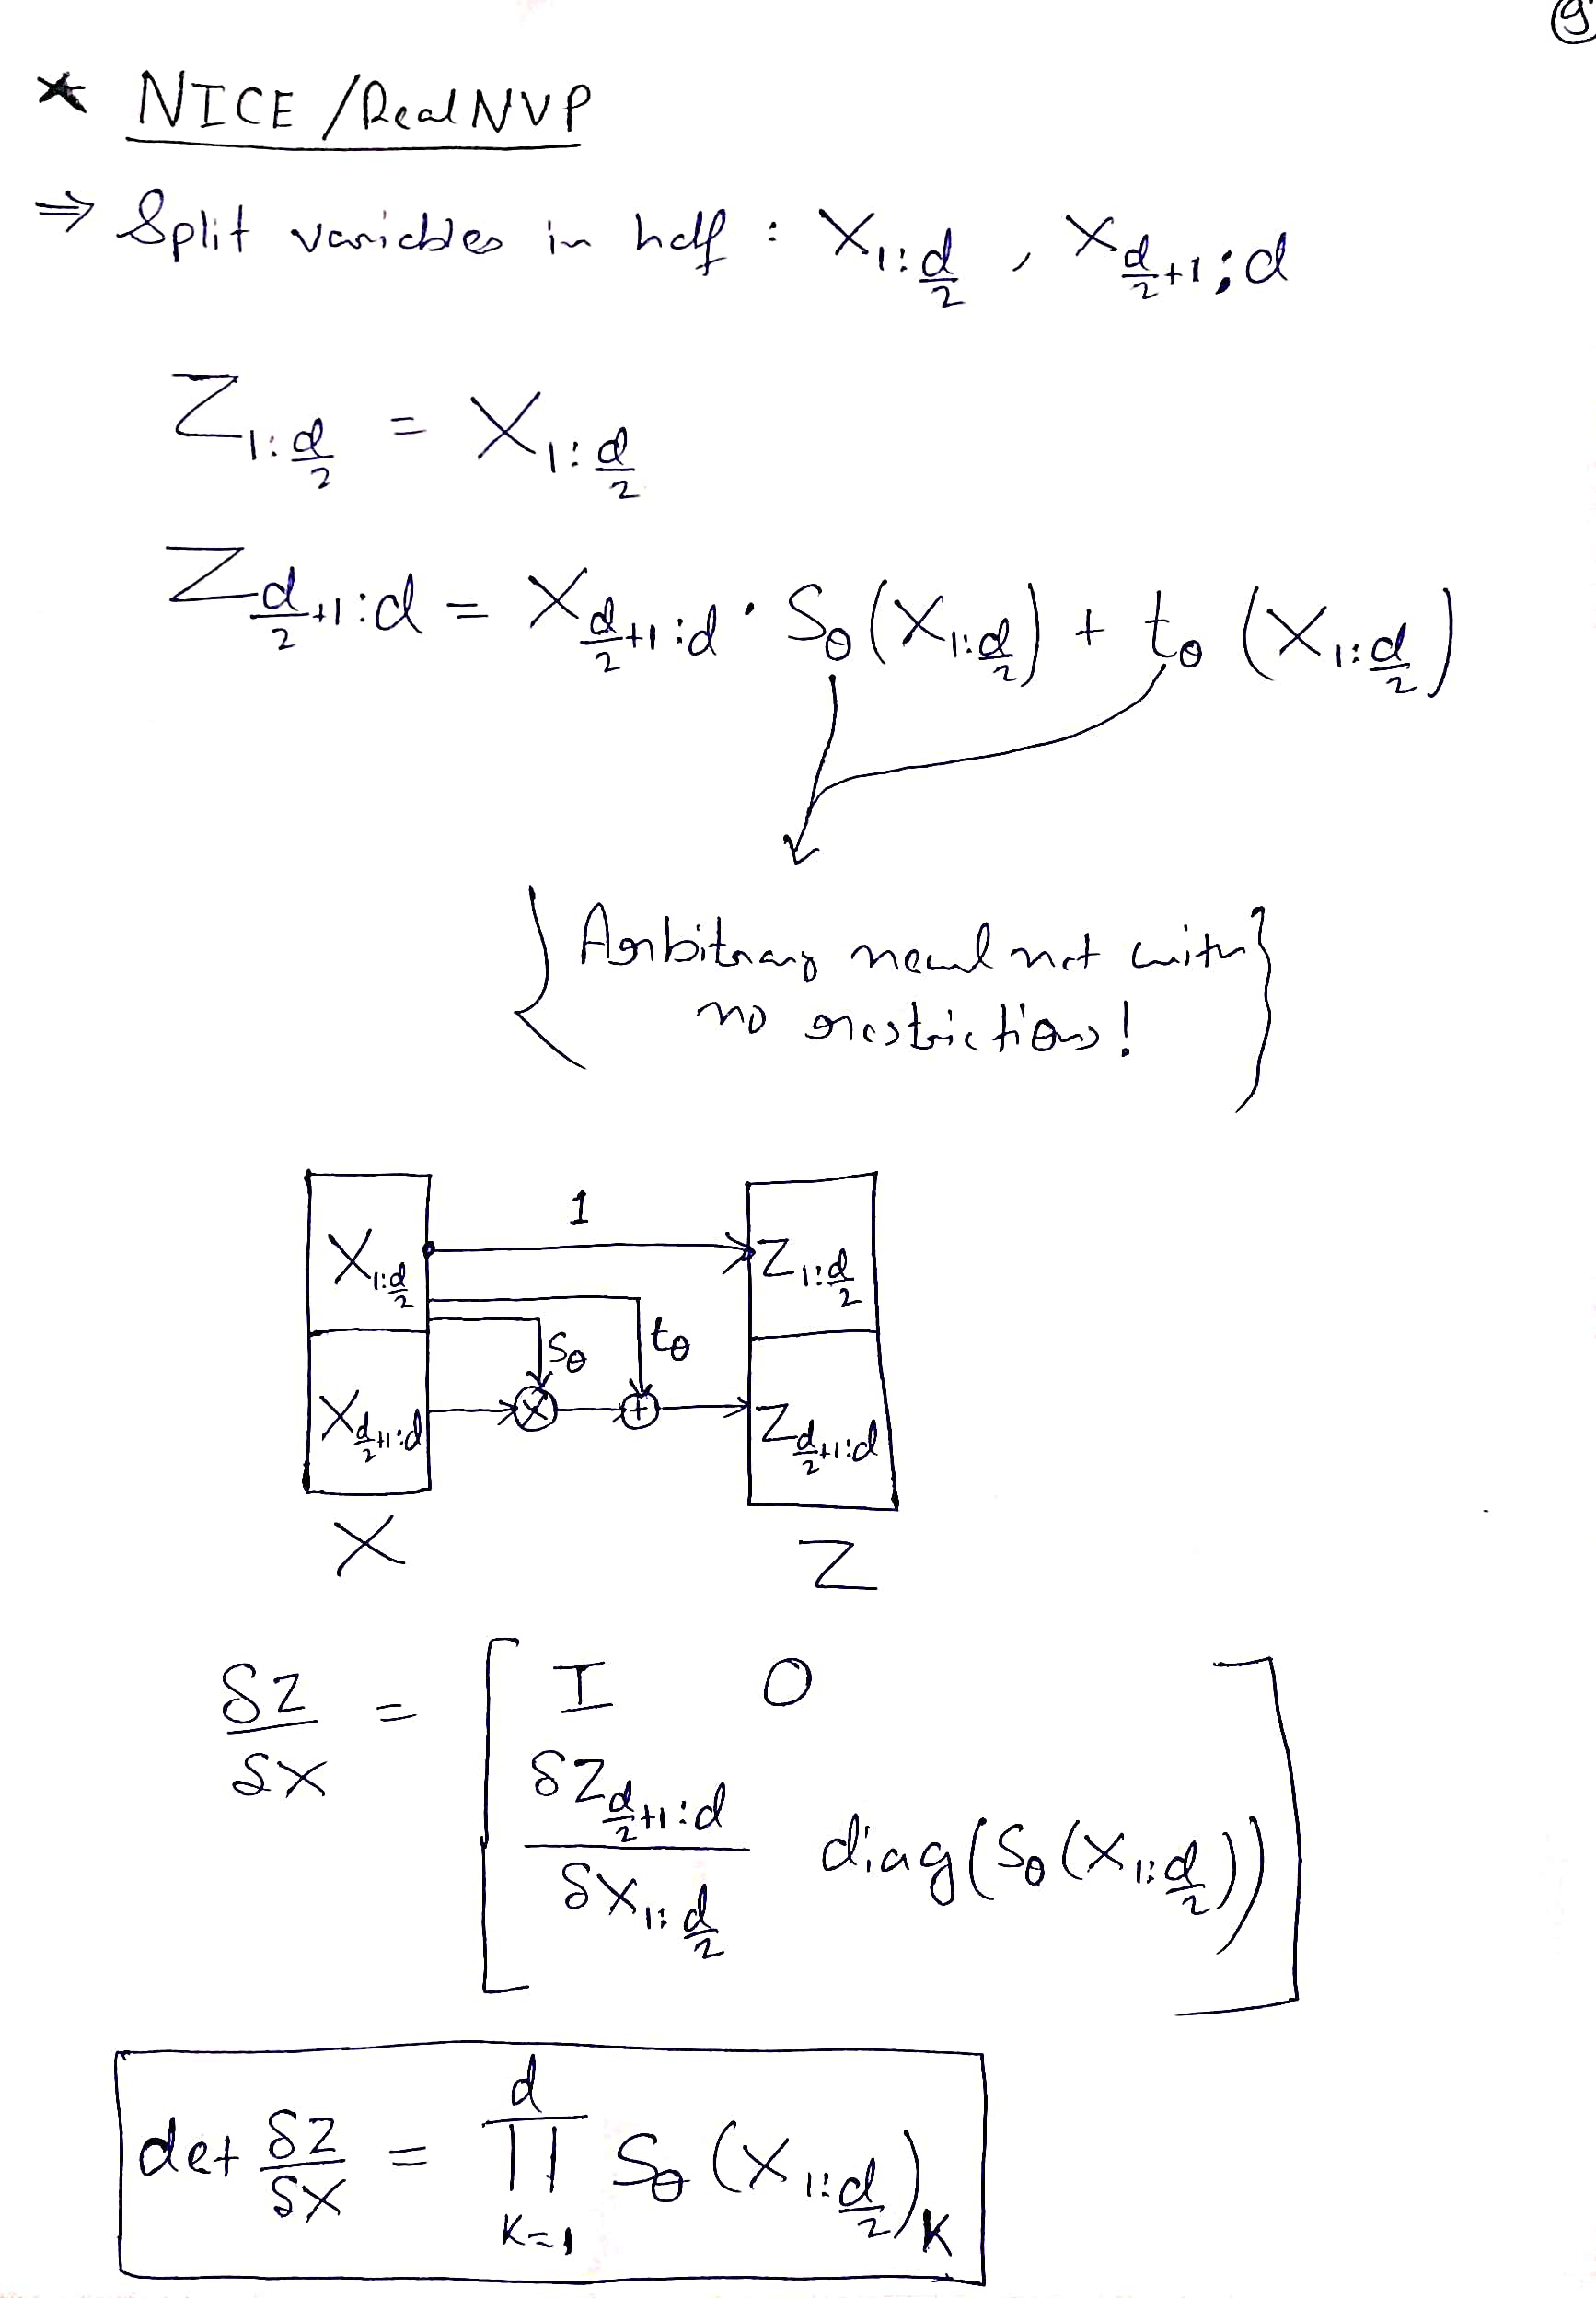 9
* NICE / Real NVP
⇒ Split variables in half : X_{1:d/2} , X_{d/2+1:d}
Z_{1:d/2} = X_{1:d/2}
Z_{d/2+1:d} = X_{d/2+1:d} · S_θ(X_{1:d/2}) + t_θ(X_{1:d/2})
{ Arbitrary neural net with
no restrictions! }
1
X_{1:d/2} Z_{1:d/2}
S_θ t_θ
X_{d/2+1:d} × + Z_{d/2+1:d}
X Z
δZ/δX = [ I 0
δZ_{d/2+1:d}/δX_{1:d/2} diag(S_θ(X_{1:d/2})) ]
det δZ/δX = ∏_{K=1}^{d} S_θ(X_{1:d/2})_K